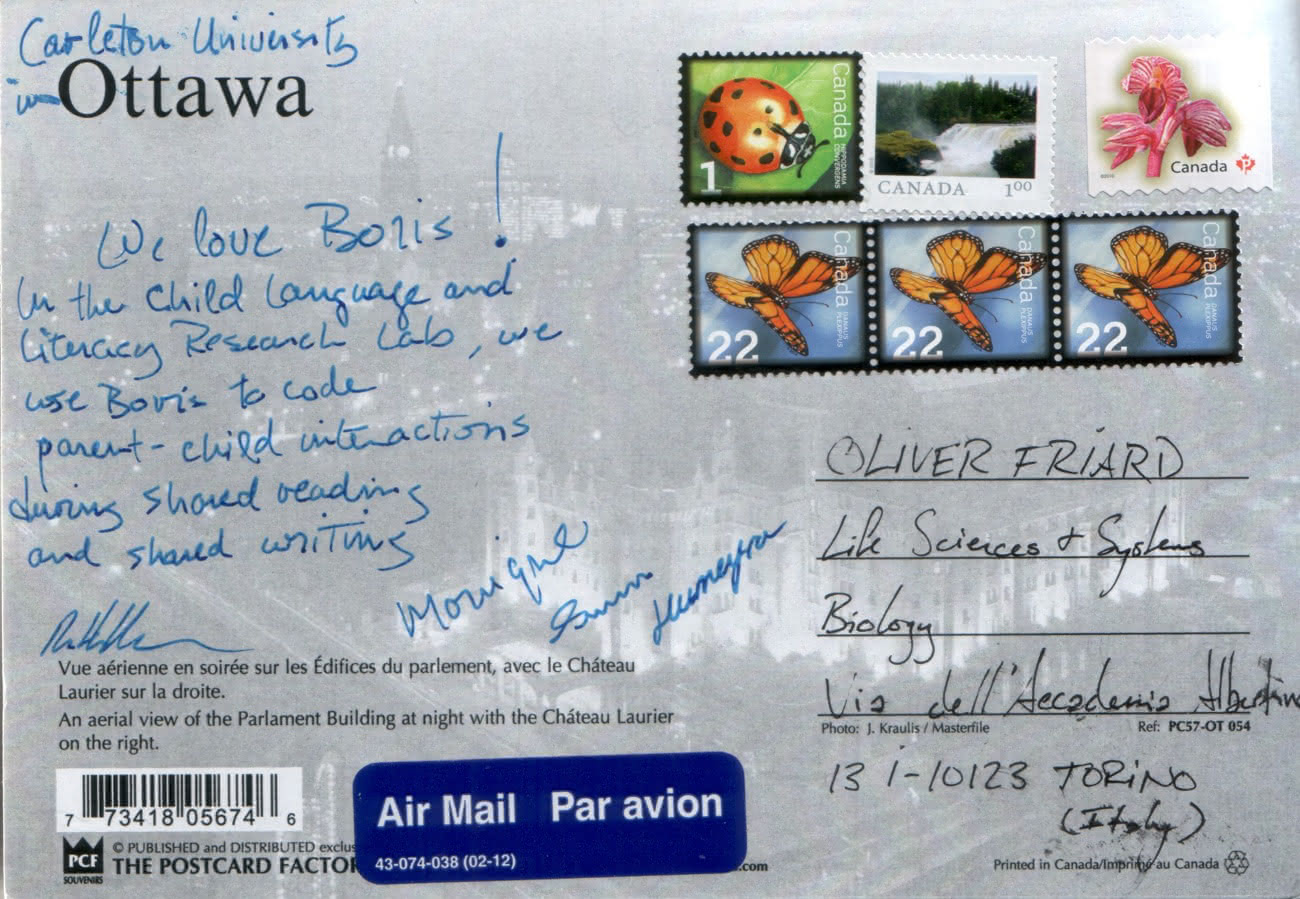 Carleton University
in Ottawa
We love Boris!
In the Child Language and
Literacy Research Lab, we
use Boris to code
parent-child interactions
during shared reading
and shared writing
Monique
Humeyra
Vue aérienne en soirée sur les Édifices du parlement, avec le Cháteau
Laurier sur la droite.
An aerial view of the Parlament Building at night with the Cháteau Laurier
on the right.
7 73418 05674 6
PCF
SOUVENIRS
© PUBLISHED and DISTRIBUTED
THE POSTCARD
Air Mail Par avion
43-074-038 (02-12)
.com
Canada
HIPPODAMIA
CONVERGENS
1
CANADA 100
Canada P
Canada
DANAUS
PLEXIPPUS
22
Canada
DANAUS
PLEXIPPUS
22
Canada
DANAUS
PLEXIPPUS
22
OLIVER FRIARD
Life Sciences + Systems
Biology
Via dell'Accademia Albertina
Photo: J. Kraulis / Masterfile Ref: PC57-OT 054
13 I-10123 TORINO
(Italy)
Printed in Canada/Imprimé au Canada